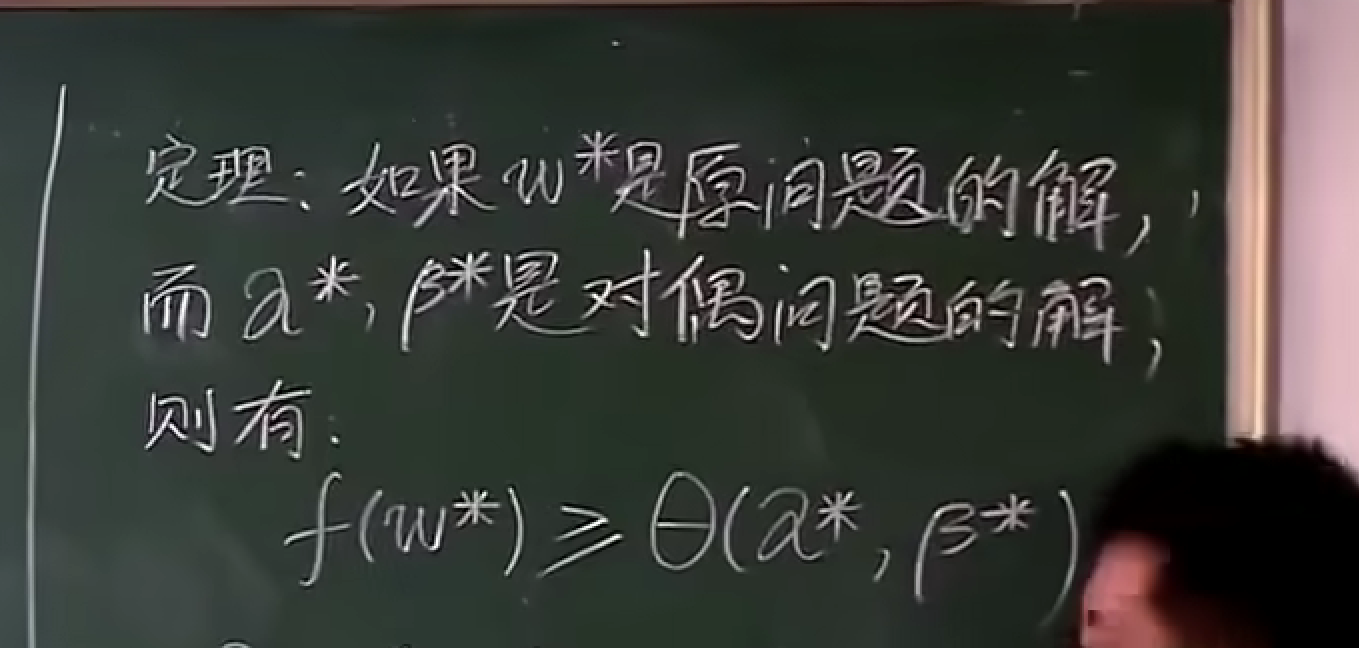 定理:如果w*是原问题的解,
而α*,β*是对偶问题的解,
则有:
f(w*)≥θ(α*,β*)